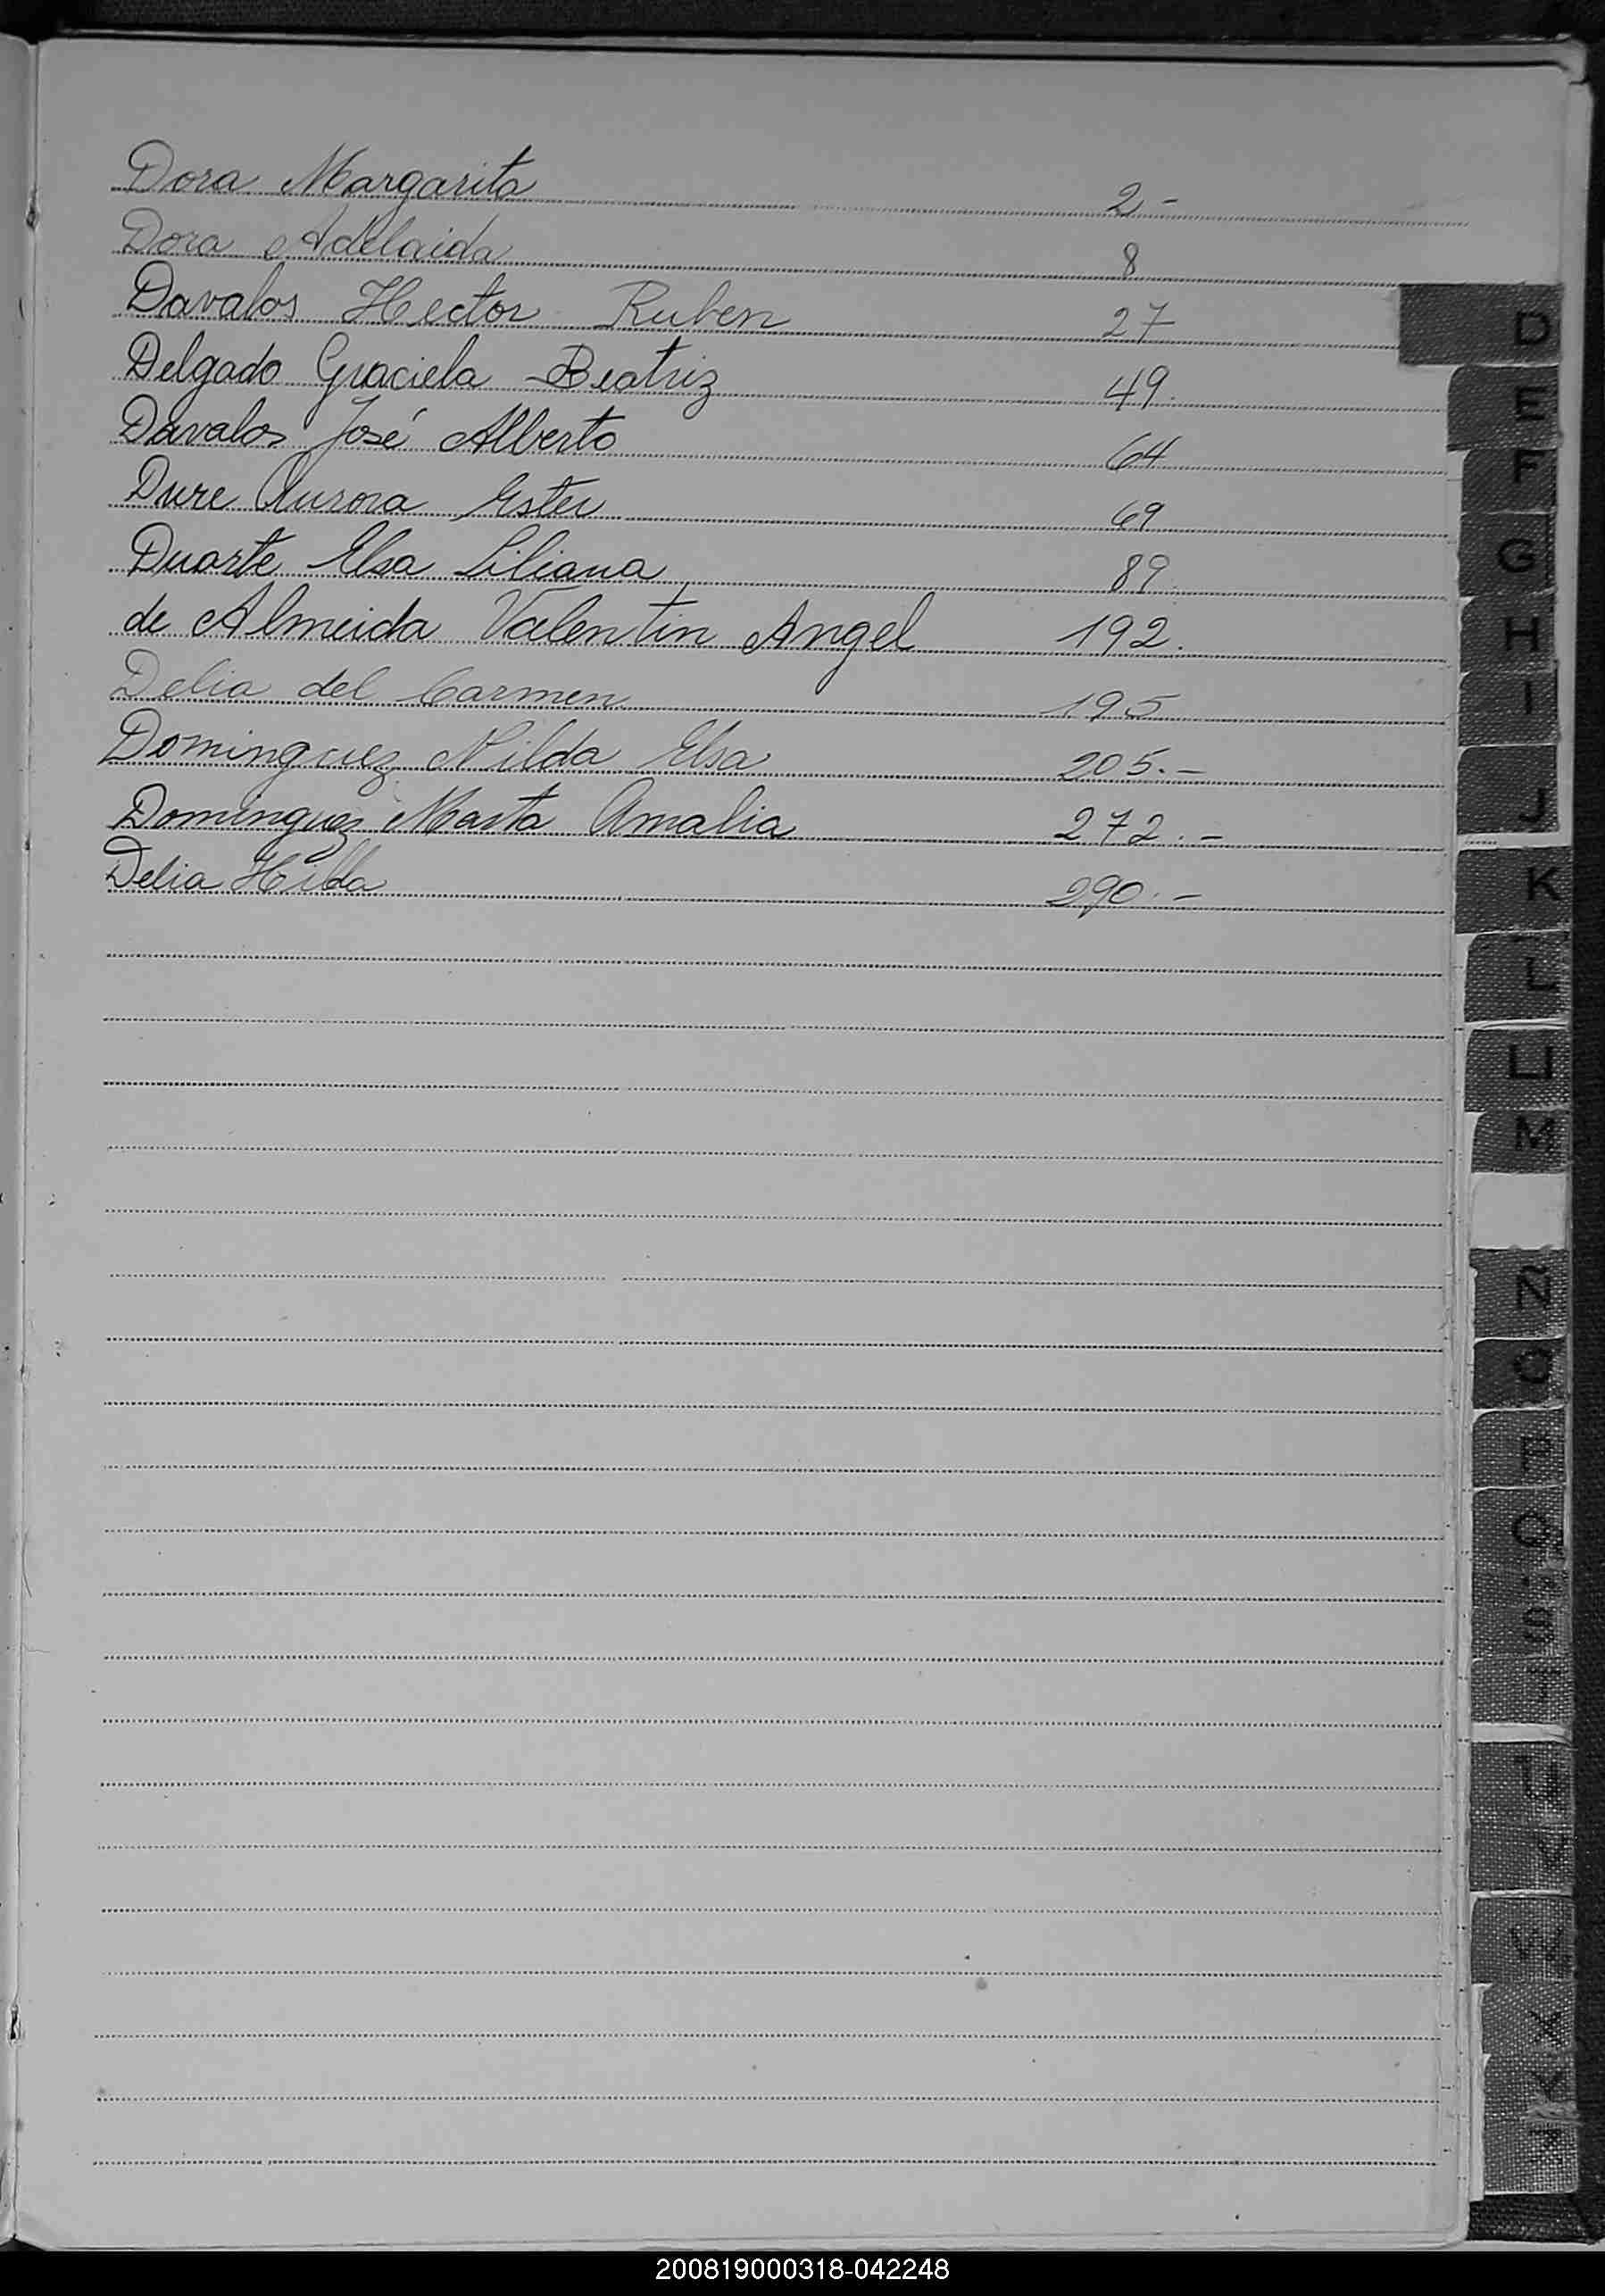 Dora Margarita 2-
Dora Adelaida 8
Davalos Hector Ruben 27
Delgado Graciela Beatriz 49.
Davalos José Alberto 64
Dure Aurora Ester 69
Duarte Elsa Liliana 89.
de Almeida Valentin Angel 192.
Delia del Carmen 195
Dominguez Nilda Elsa 205.-
Dominguez Marta Amalia 272.-
Delia Hilda 290.-
D
E
F
G
H
I
J
K
L
LL
M
N
O
P
Q
S
T
U
V
W
X
Y
200819000318-042248